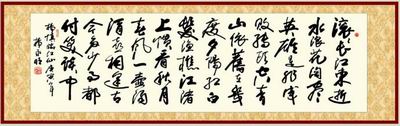 滚滚长江东逝
水浪花淘尽
英雄是非成
败转头空青
山依旧在几
度夕阳红白
发渔樵江渚
上惯看秋月
春风一壶浊
酒喜相逢古
今多少事都
付笑谈中
杨慎临江仙